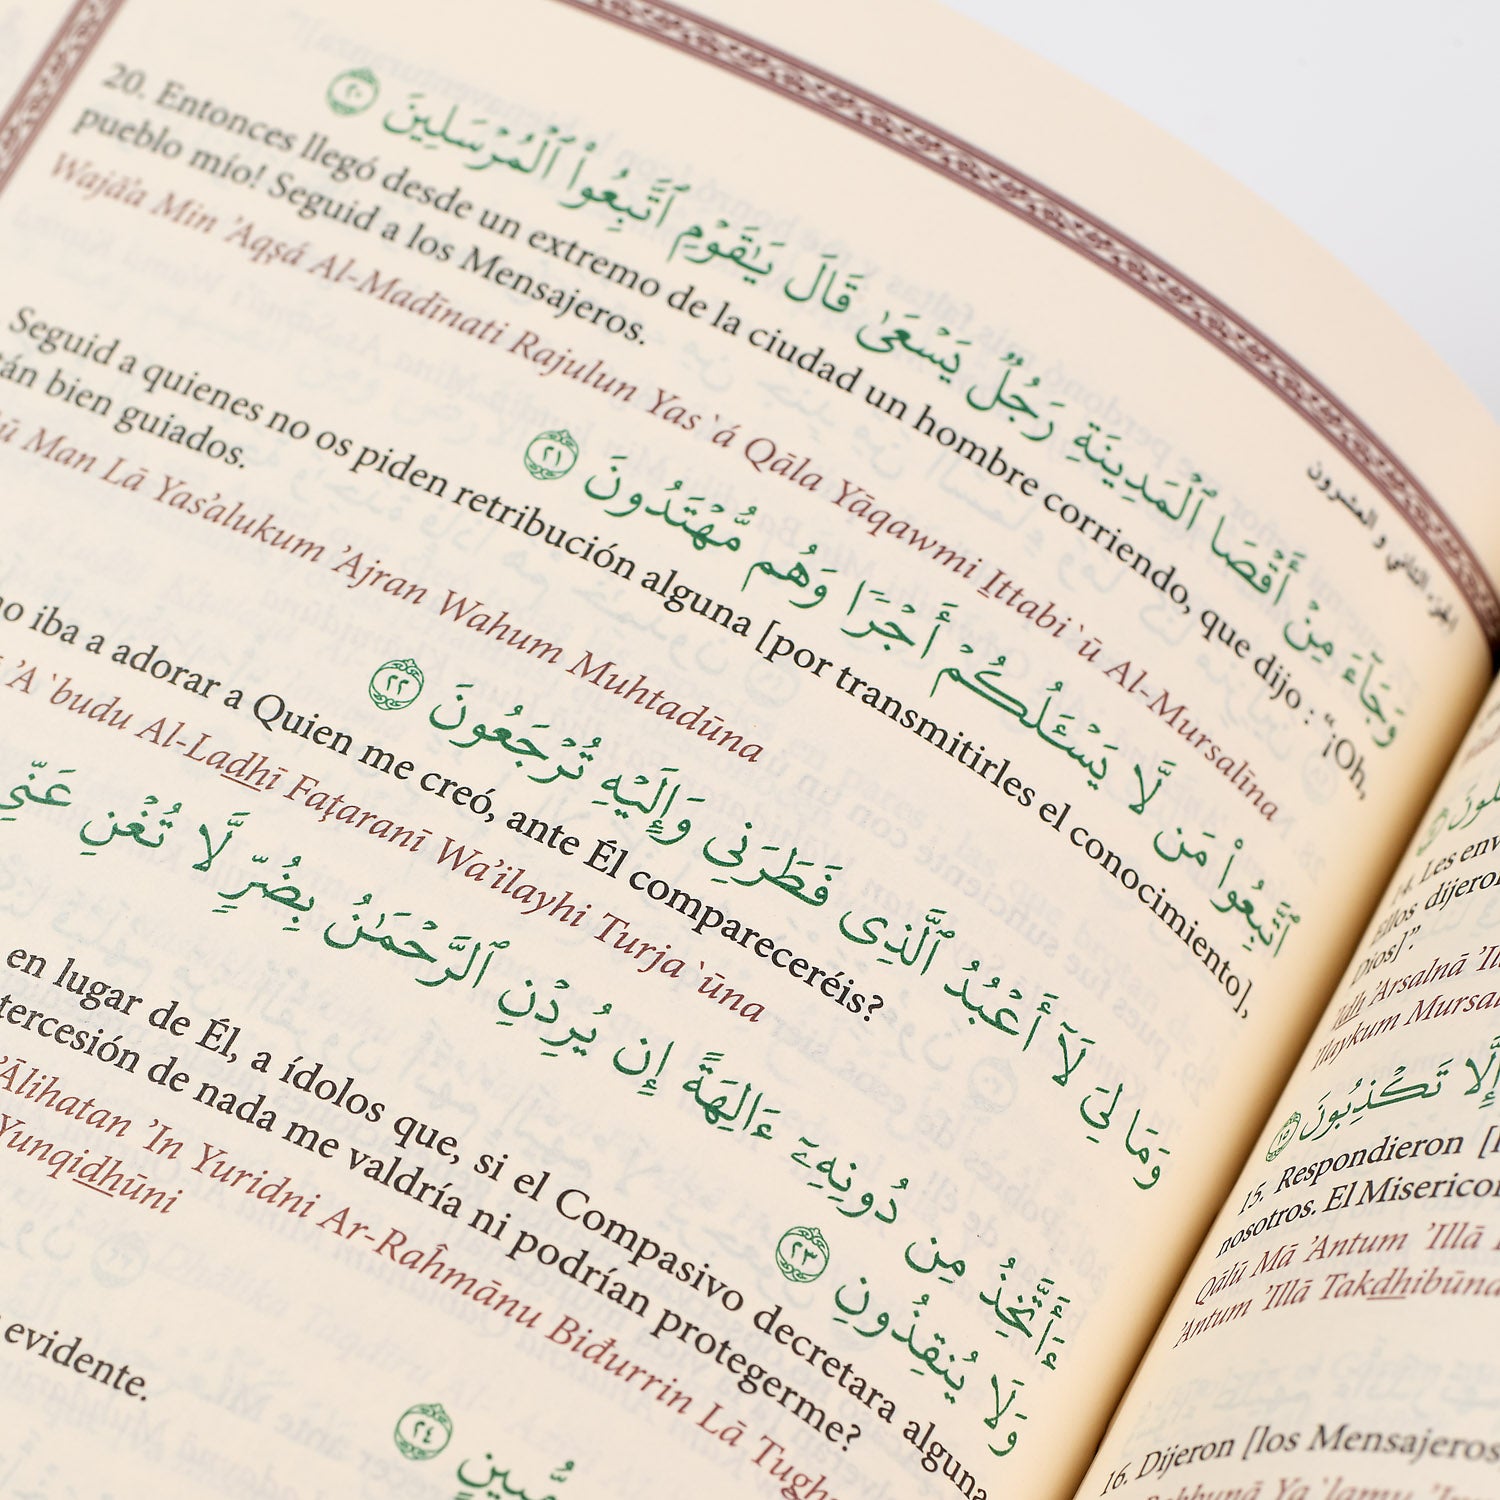 الجزء الثاني و العشرون
وَجَآءَ مِنْ أَقْصَا ٱلْمَدِينَةِ رَجُلٌ يَسْعَىٰ قَالَ يَٰقَوْمِ ٱتَّبِعُوا۟ ٱلْمُرْسَلِينَ ٢٠
20. Entonces llegó desde un extremo de la ciudad un hombre corriendo, que dijo : “¡Oh,
pueblo mío! Seguid a los Mensajeros.
Wajā'a Min 'Aqşá Al-Madīnati Rajulun Yas`á Qāla Yāqawmi Ittabi`ū Al-Mursalīna
ٱتَّبِعُوا۟ مَن لَّا يَسْـَٔلُكُمْ أَجْرًا وَهُم مُّهْتَدُونَ ٢١
Seguid a quienes no os piden retribución alguna [por transmitirles el conocimiento],
bien guiados.
Man Lā Yas'alukum 'Ajran Wahum Muhtadūna
وَمَا لِىَ لَآ أَعْبُدُ ٱلَّذِى فَطَرَنِى وَإِلَيْهِ تُرْجَعُونَ ٢٢
iba a adorar a Quien me creó, ante Él compareceréis?
'A`budu Al-Ladhī Faţaranī Wa'ilayhi Turja`ūna
ءَأَتَّخِذُ مِن دُونِهِۦٓ ءَالِهَةً إِن يُرِدْنِ ٱلرَّحْمَٰنُ بِضُرٍّ لَّا تُغْنِ عَنِّى
وَلَا يُنقِذُونِ ٢٣
en lugar de Él, a ídolos que, si el Compasivo decretara alguna
tercesión de nada me valdría ni podrían protegerme?
'Ālihatan 'In Yuridni Ar-Raĥmānu Biđurrin Lā Tugh
Yunqidhūni
مُّبِينٍ ٢٤
evidente.
14. Les env
Ellos dijeron
Dios]”.
'Idh 'Arsalnā
'Ilaykum Mursal
إِلَّا تَكْذِبُونَ ١٥
15. Respondieron
nosotros. El Misericor
Qālū Mā 'Antum 'Illā
'Antum 'Illā Takdhibūna
16. Dijeron [los Mensajeros